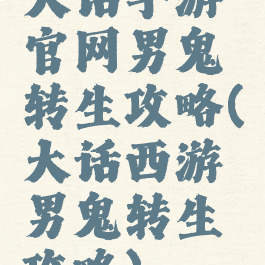 大话手游
官网男鬼
转生攻略(
大话西游
男鬼转生
攻略)